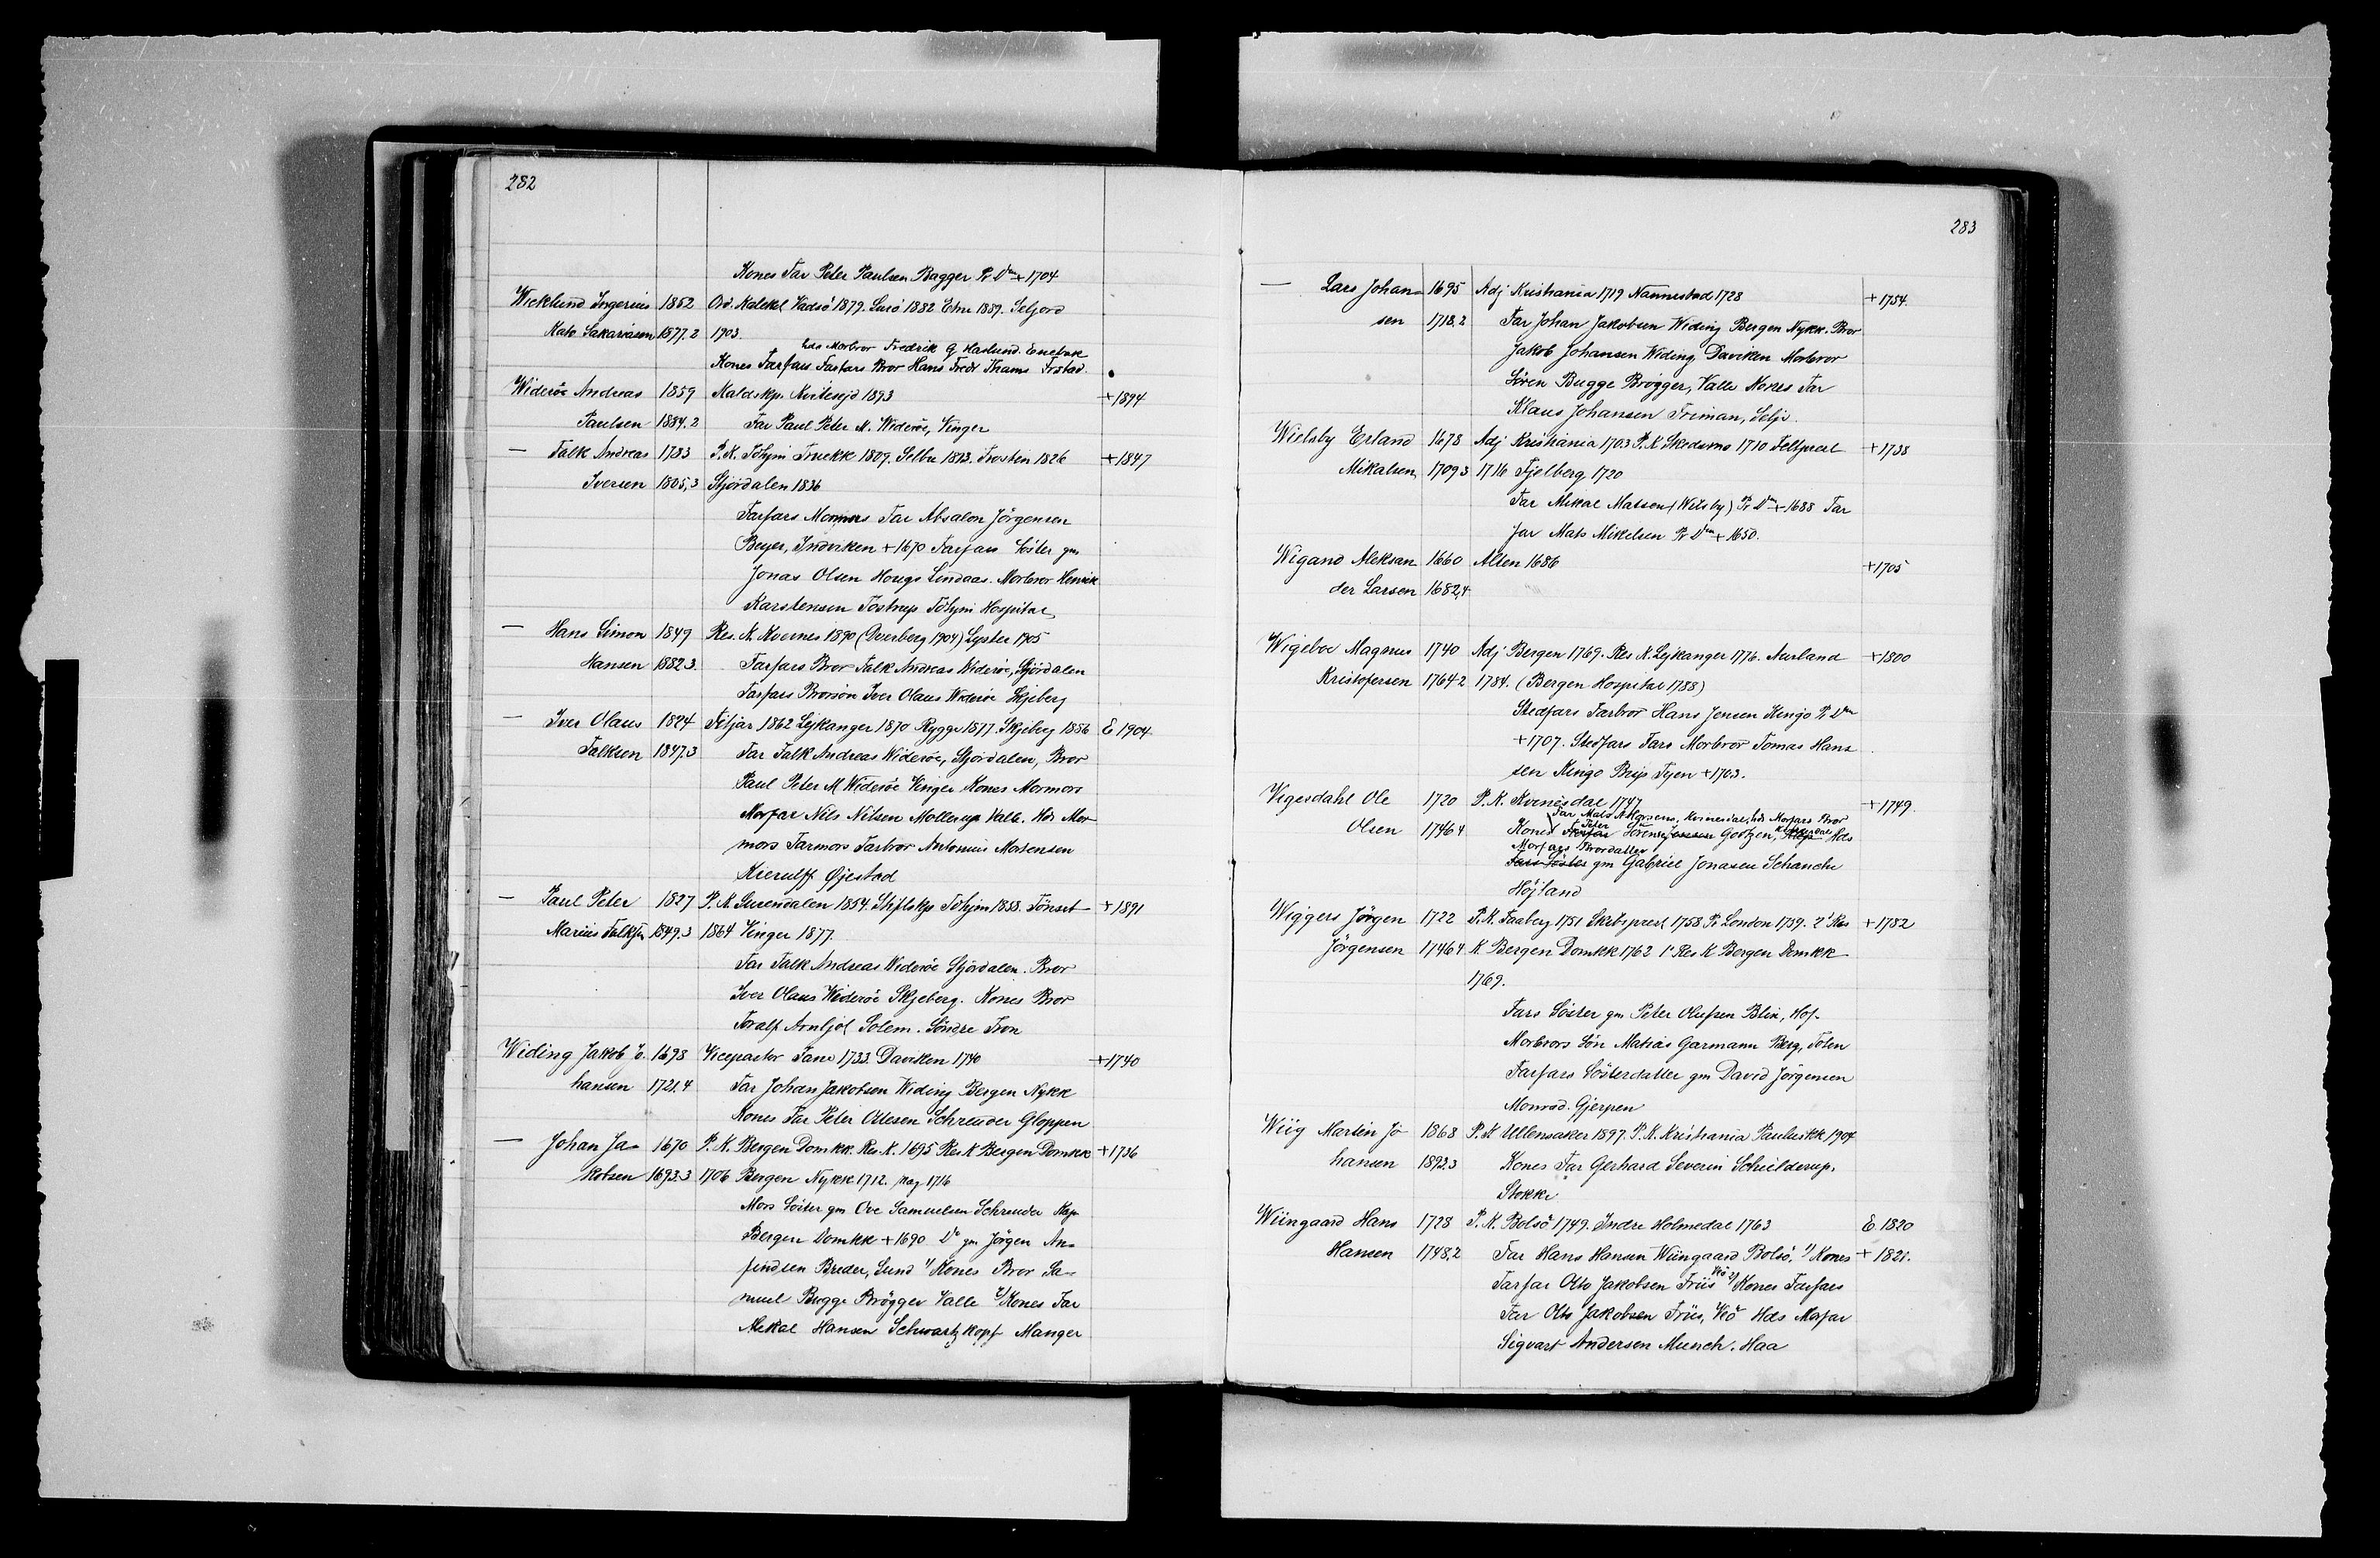 282
Kones Far Peter Paulsen Bagger Pr Dm + 1704
Wicklund Ingerius 1852 Ord. Katekt Vadsö 1879. 1882 1889. Seljord
Mats Sakariasen 1877.2 1903.
hds Morbror Fredrik G Haslund. Enebak
Kones Farfars Farfars Bror Hans Fredr Thams
Wideröe Andreas 1859 Kaldskp. Kvitesejd 1893 + 1894
Paulsen 1884.2 Far Paul Peter M. Wideröe, Vinger
— Falk Andreas 1783 P.K. Tøhjm Fruekk 1809. Selbu 1813. Frosten 1826 + 1847
Iversen 1805,3 Stjördalen 1836
Farfars Mormors Far Absalon Jörgensen
Beyer, Indviken + 1670 Farfars Söster gm
Jonas Olsen Hougs Lindaas. Morbror Henrik
Karstensen Tostrup Tøhjm Hospital
— Hans Simon 1849 Res. K. Kvernes 1890 (Dverberg 1904) Lyster 1905
Hansen 1882.3. Farfars Bror Falk Andreas Wideröe, Stjördalen
Farfars Brorsön Iver Olaus Wideröe Skjeberg
— Iver Olaus 1824 Fitjar 1862 Lejkanger 1870 Rygge 1877. Skjeberg 1886 E 1904
Falksen 1847.3 Far Falk Andreas Wideröe, Stjördalen, Bror
Paul Peter M Wideröe Vinger Kones Mormors
Morfar Nils Nilsen Mollerup Valle. Hds Mor
mors Farmors Farbror Antonius Mortensen
Kierulff Øjestad
— Paul Peter 1827 P.K. Surendalen 1854. Stiftskp Tøhjm 1858. Tönset + 1891
Marius Falksen 1849.3 1864 Vinger 1877.
Far Falk Andreas Wideröe Stjördalen. Bror
Iver Olaus Wideröe Skjeberg. Kones Bror
Toralf Arnljot Solem. Söndre Fron
Widing Jakob Jo 1698 Vicepastor Fane 1733. Daviken 1740 + 1740
hansen 1721.4 Far Johan Jakobsen Widing Bergen Nykk
Kones Far Peter Ottesen Schreuder Gloppen
— Johan Ja- 1670 P.K. Bergen Domkk. Res. K. 1695 Res K Bergen Domkk + 1736
kobsen 1693.3 1706 Bergen Nykk 1712. Mag 1716
Mors Söster gm Ove Samuelsen Schreuder Kap
Bergen Domkk + 1690. Do gm Jörgen An-
findsen Breder, Sund 1/ Kones Bror Sa-
muel Bugge Brögger Valle 2/ Kones Far
Mikal Hansen Schwartzkopf Manger
283
— Lars Johan- 1695 Adj Kristiania 1719 Nannestad 1728 + 1754.
sen 1718.2 Far Johan Jakobsen Widing Bergen Nykk. Bror
Jakob Johansen Widing Daviken Morbror
Sören Bugge Brögger, Valle Kones Far
Klaus Johansen Friman, Selje.
Wielsby Erland 1678 Adj Kristiania 1703 P.K Skedsmo 1710 Feltprest + 1738
Mikalsen 1709 3 1716 Fjelberg 1720
Far Mikal Matsen (Wilsby) Pr Dm + 1688 Far
far Mats Mikelsen Pr Dm + 1650.
Wigand Aleksan 1660 Alten 1686 + 1705
der Larsen 1682,4
Wigeboe Magnus 1740 Adj Bergen 1769. Res K. Lejkanger 1776. Aurland + 1800
Kristofersen 1764.2 1784. (Bergen Hospital 1788)
Stedfars Farbror Hans Jensen Kingo Pr Dm
+ 1707. Stedfars Fars Morbror Tomas Hans
sen Kingo Bisp Fyen + 1703.
Vigesdahl Ole 1720 P.K. Kvinesdal 1747 + 1749.
Far Mats Kvinesdal, hds Morfars Bror
Olsen 1746 4 Kones Peter Sörensen Godtzen, Hds
Morfars Brordatter
Fars Söster gm Gabriel Jonasen Schanche
Höjland
Wiggers Jörgen 1722 P.K. Faaberg 1751 Skibsprest 1758 Pr London 1759. 2' Res + 1782
Jörgensen 1746 4 K Bergen Domkk 1762 1' Res K Bergen Domkk
1769.
Fars Söster gm Peter Olufsen Blix, Hof.
Morbrors Sön Matias Garmann Berg, Toten
Farfars Sösterdatter gm David Jörgensen
Monrad. Gjerpen
Wiig Martin Jo 1868 P.K Ullensaker 1897. P.K. Kristiania Pauluskk 1904
hansen 1893.3 Kones Far Gerhard Severin Schielderup.
Stokke
Wiingaard Hans 1728 P.K. Bolsö 1749. Indre Holmedal 1763 E 1820
Hansen 1748.2 Far Hans Hansen Wiingaard Bolsö. 1/ Kones + 1821.
Farfar Otto Jakobsen Friis Veö 2/ Kones Farfars
Far Otto Jakobsen Friis, Veö Hds Morfar
Sigvart Andersen Munch. Haa